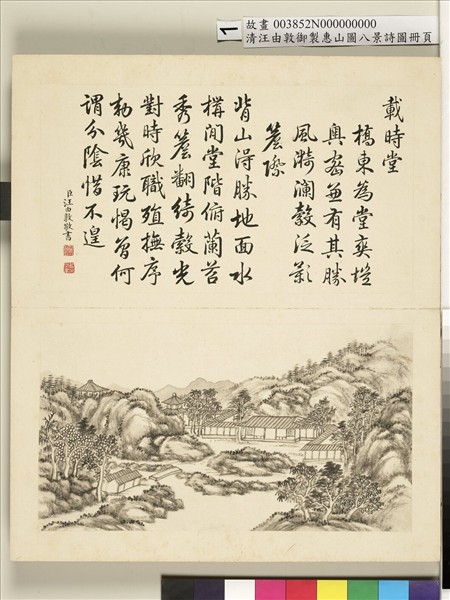 1
故畫 003852N000000000
清汪由敦御製惠山園八景詩圖冊頁
載時堂
橋東為堂爽塏
奧密並有其勝
風漪瀾縠泛影
簷際
背山得勝地面水
構閒堂階俯蘭苕
秀簷翻綺縠光
對時欣職殖撫序
勑幾康玩愒曾何
謂分陰惜不遑
臣汪由敦敬書